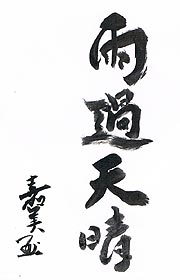 雨過天晴
嘉美